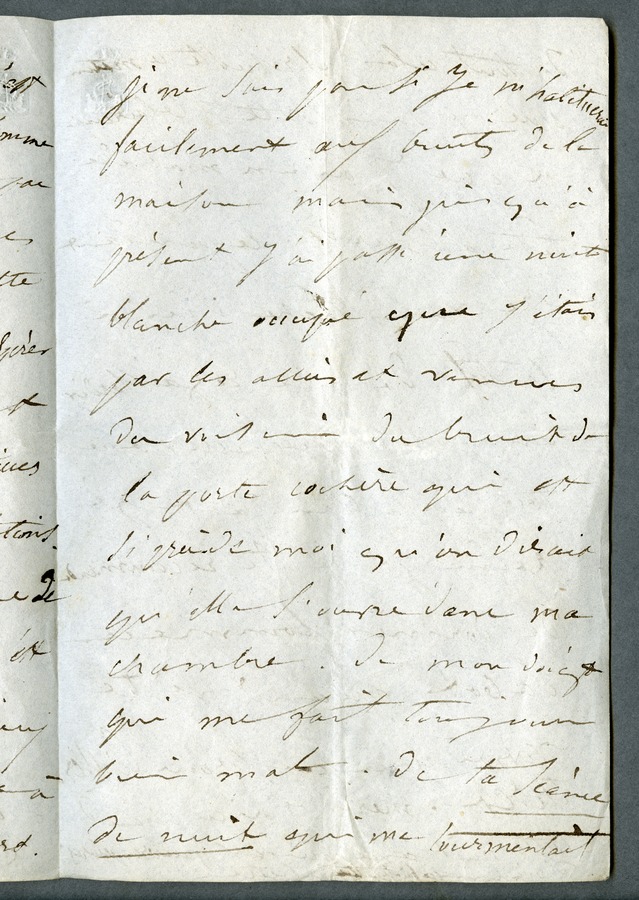 je ne sais pas si je m'habituerai
facilement aux bruits de la
maison mais jusqu'à
présent j'ai passé une nuit
blanche occupé que j'étais
par les allées et venues
du voisin du bruit de
la porte cochère qui est
si près de moi qu'on dirait
qu'elle s'ouvre dans ma
chambre. de mon doigt
qui me fait toujours
bien mal. de ta séance
de nuit qui me tourmentait